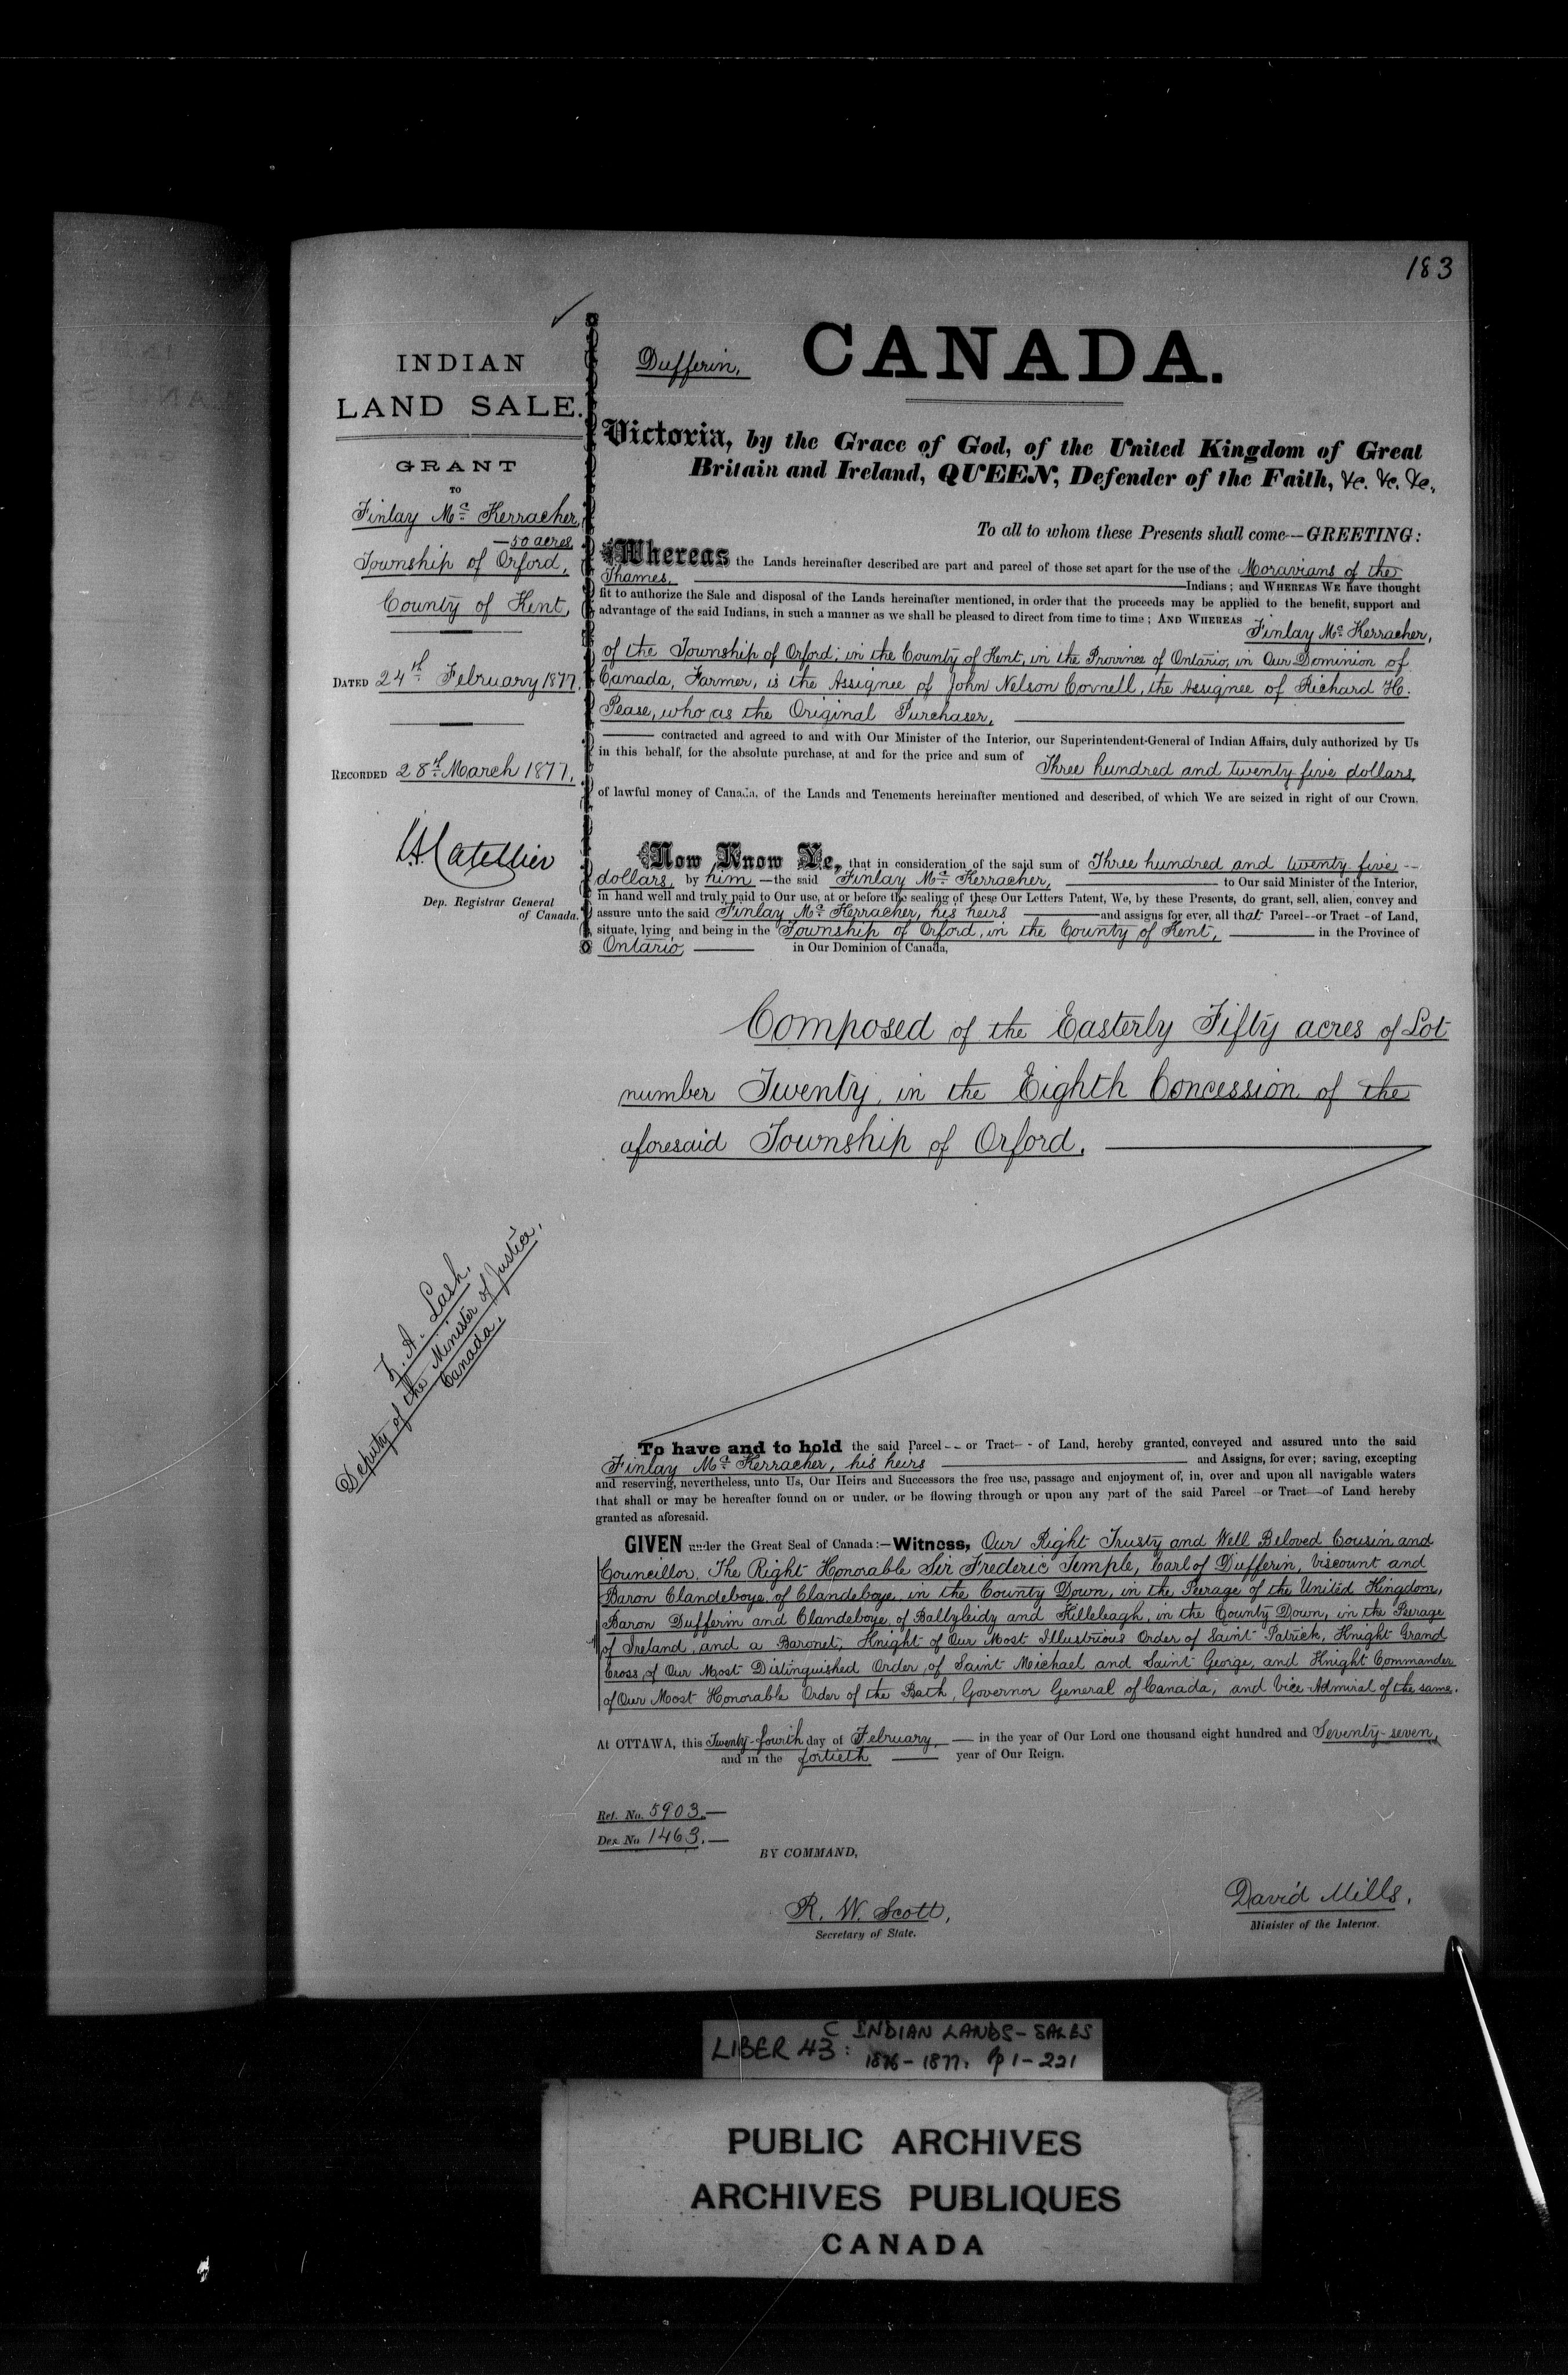 183
INDIAN
LAND SALE.
GRANT
TO
Finlay Mc Kerracher,
— 50 acres
Township of Orford,
County of Kent,
DATED 24th February 1877.
RECORDED 28th March 1877.
Dep. Registrar General
of Canada.
L. A. Lash.
Deputy of the Minister of Justice.
Canada.
Dufferin,
CANADA.
Victoria, by the Grace of God, of the United Kingdom of Great
Britain and Ireland, QUEEN, Defender of the Faith, &c. &c. &c.
To all to whom these Presents shall come—GREETING:
Whereas the Lands hereinafter described are part and parcel of those set apart for the use of the Moravians of the
Thames, Indians; and WHEREAS WE have thought
fit to authorize the Sale and disposal of the Lands hereinafter mentioned, in order that the proceeds may be applied to the benefit, support and
advantage of the said Indians, in such a manner as we shall be pleased to direct from time to time; AND WHEREAS Finlay Mc Kerracher,
of the Township of Orford, in the County of Kent, in the Province of Ontario, in Our Dominion of
Canada, Farmer, is the Assignee of John Nelson Cornell, the Assignee of Richard H.
Pease, who as the Original Purchaser,
contracted and agreed to and with Our Minister of the Interior, our Superintendent-General of Indian Affairs, duly authorized by Us
in this behalf, for the absolute purchase, at and for the price and sum of Three hundred and twenty five dollars,
of lawful money of Canada, of the Lands and Tenements hereinafter mentioned and described, of which We are seized in right of our Crown.
Now Know Ye, that in consideration of the said sum of Three hundred and twenty five --
dollars, by him — the said Finlay Mc Kerracher, to Our said Minister of the Interior,
in hand well and truly paid to Our use, at or before the sealing of these Our Letters Patent, We, by these Presents, do grant, sell, alien, convey and
assure unto the said Finlay Mc Kerracher, his heirs and assigns for ever, all that Parcel--or Tract -of Land,
situate, lying, and being in the Township of Orford, in the County of Kent, in the Province of
Ontario, in Our Dominion of Canada,
Composed of the Easterly Fifty acres of Lot
number Twenty, in the Eighth Concession of the
aforesaid Township of Orford.
To have and to hold the said Parcel -- or Tract-- of Land, hereby granted, conveyed and assured unto the said
Finlay Mc Kerracher, his heirs and Assigns, for ever; saving, excepting
and reserving, nevertheless, unto Us, Our Heirs and Successors the free use, passage and enjoyment of, in, over and upon all navigable waters
that shall or may be hereafter found on or under, or be flowing through or upon any part of the said Parcel or Tract—of Land hereby
granted as aforesaid.
GIVEN under the Great Seal of Canada:—Witness, Our Right Trusty and Well Beloved Cousin and
Councillor, The Right Honorable Sir Frederic Temple, Earl of Dufferin, Viscount and
Baron Clandeboye, of Clandeboye, in the County Down, in the Peerage of the United Kingdom,
Baron Dufferin and Clandeboye, of Ballyleidy and Killeleagh, in the County Down, in the Peerage
of Ireland, and a Baronet, Knight of Our Most Illustrious Order of Saint Patrick, Knight Grand
Cross of Our Most Distinguished Order of Saint Michael and Saint George, and Knight Commander
of Our Most Honorable Order of the Bath, Governor General of Canada, and Vice-Admiral of the same.
At OTTAWA, this Twenty-fourth day of February, — in the year of Our Lord one thousand eight hundred and Seventy-seven,
and in the fortieth year of Our Reign.
Ref. No. 5903.—
Des. No 1463.—
BY COMMAND,
R. W. Scott,
Secretary of State.
David Mills,
Minister of the Interior.
LIBER 43: C INDIAN LANDS-SALES
1876-1877. Pp 1-221
PUBLIC ARCHIVES
ARCHIVES PUBLIQUES
CANADA